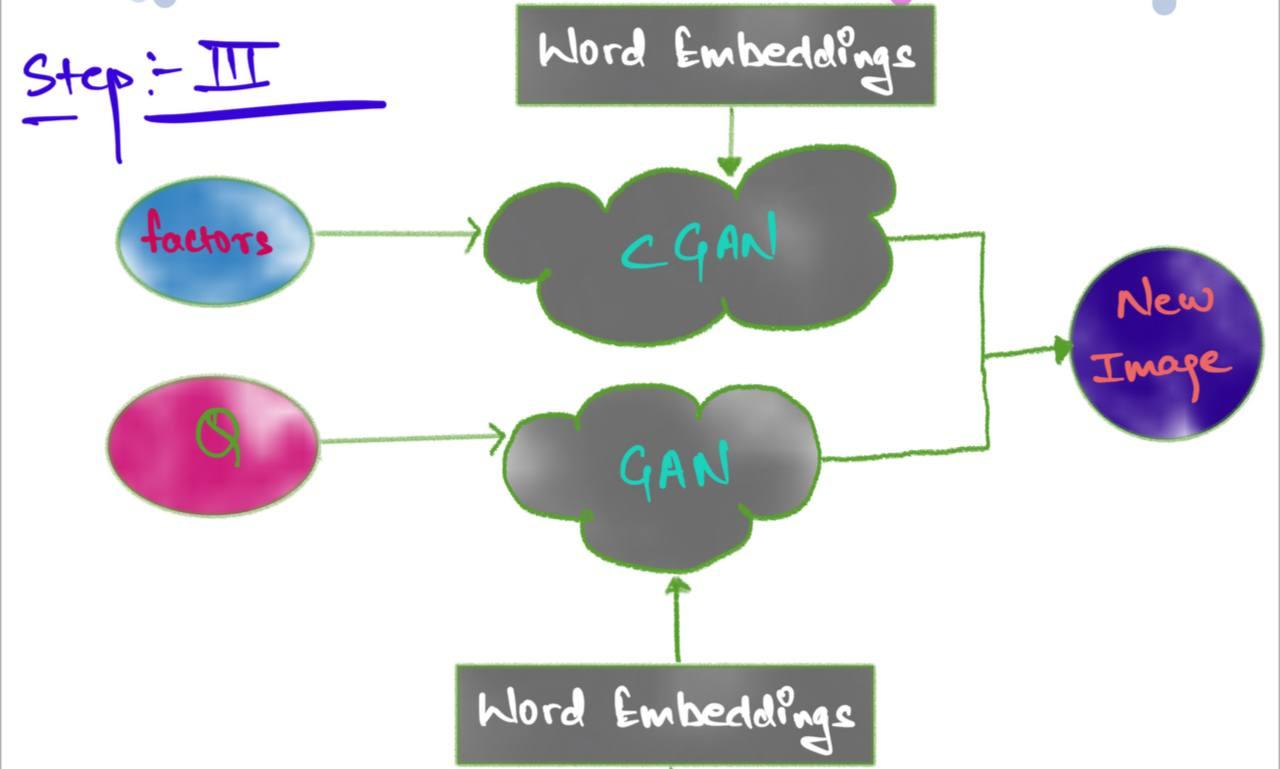 Step:- III
Word Embeddings
factors
CGAN
New
Image
Q
GAN
Word Embeddings